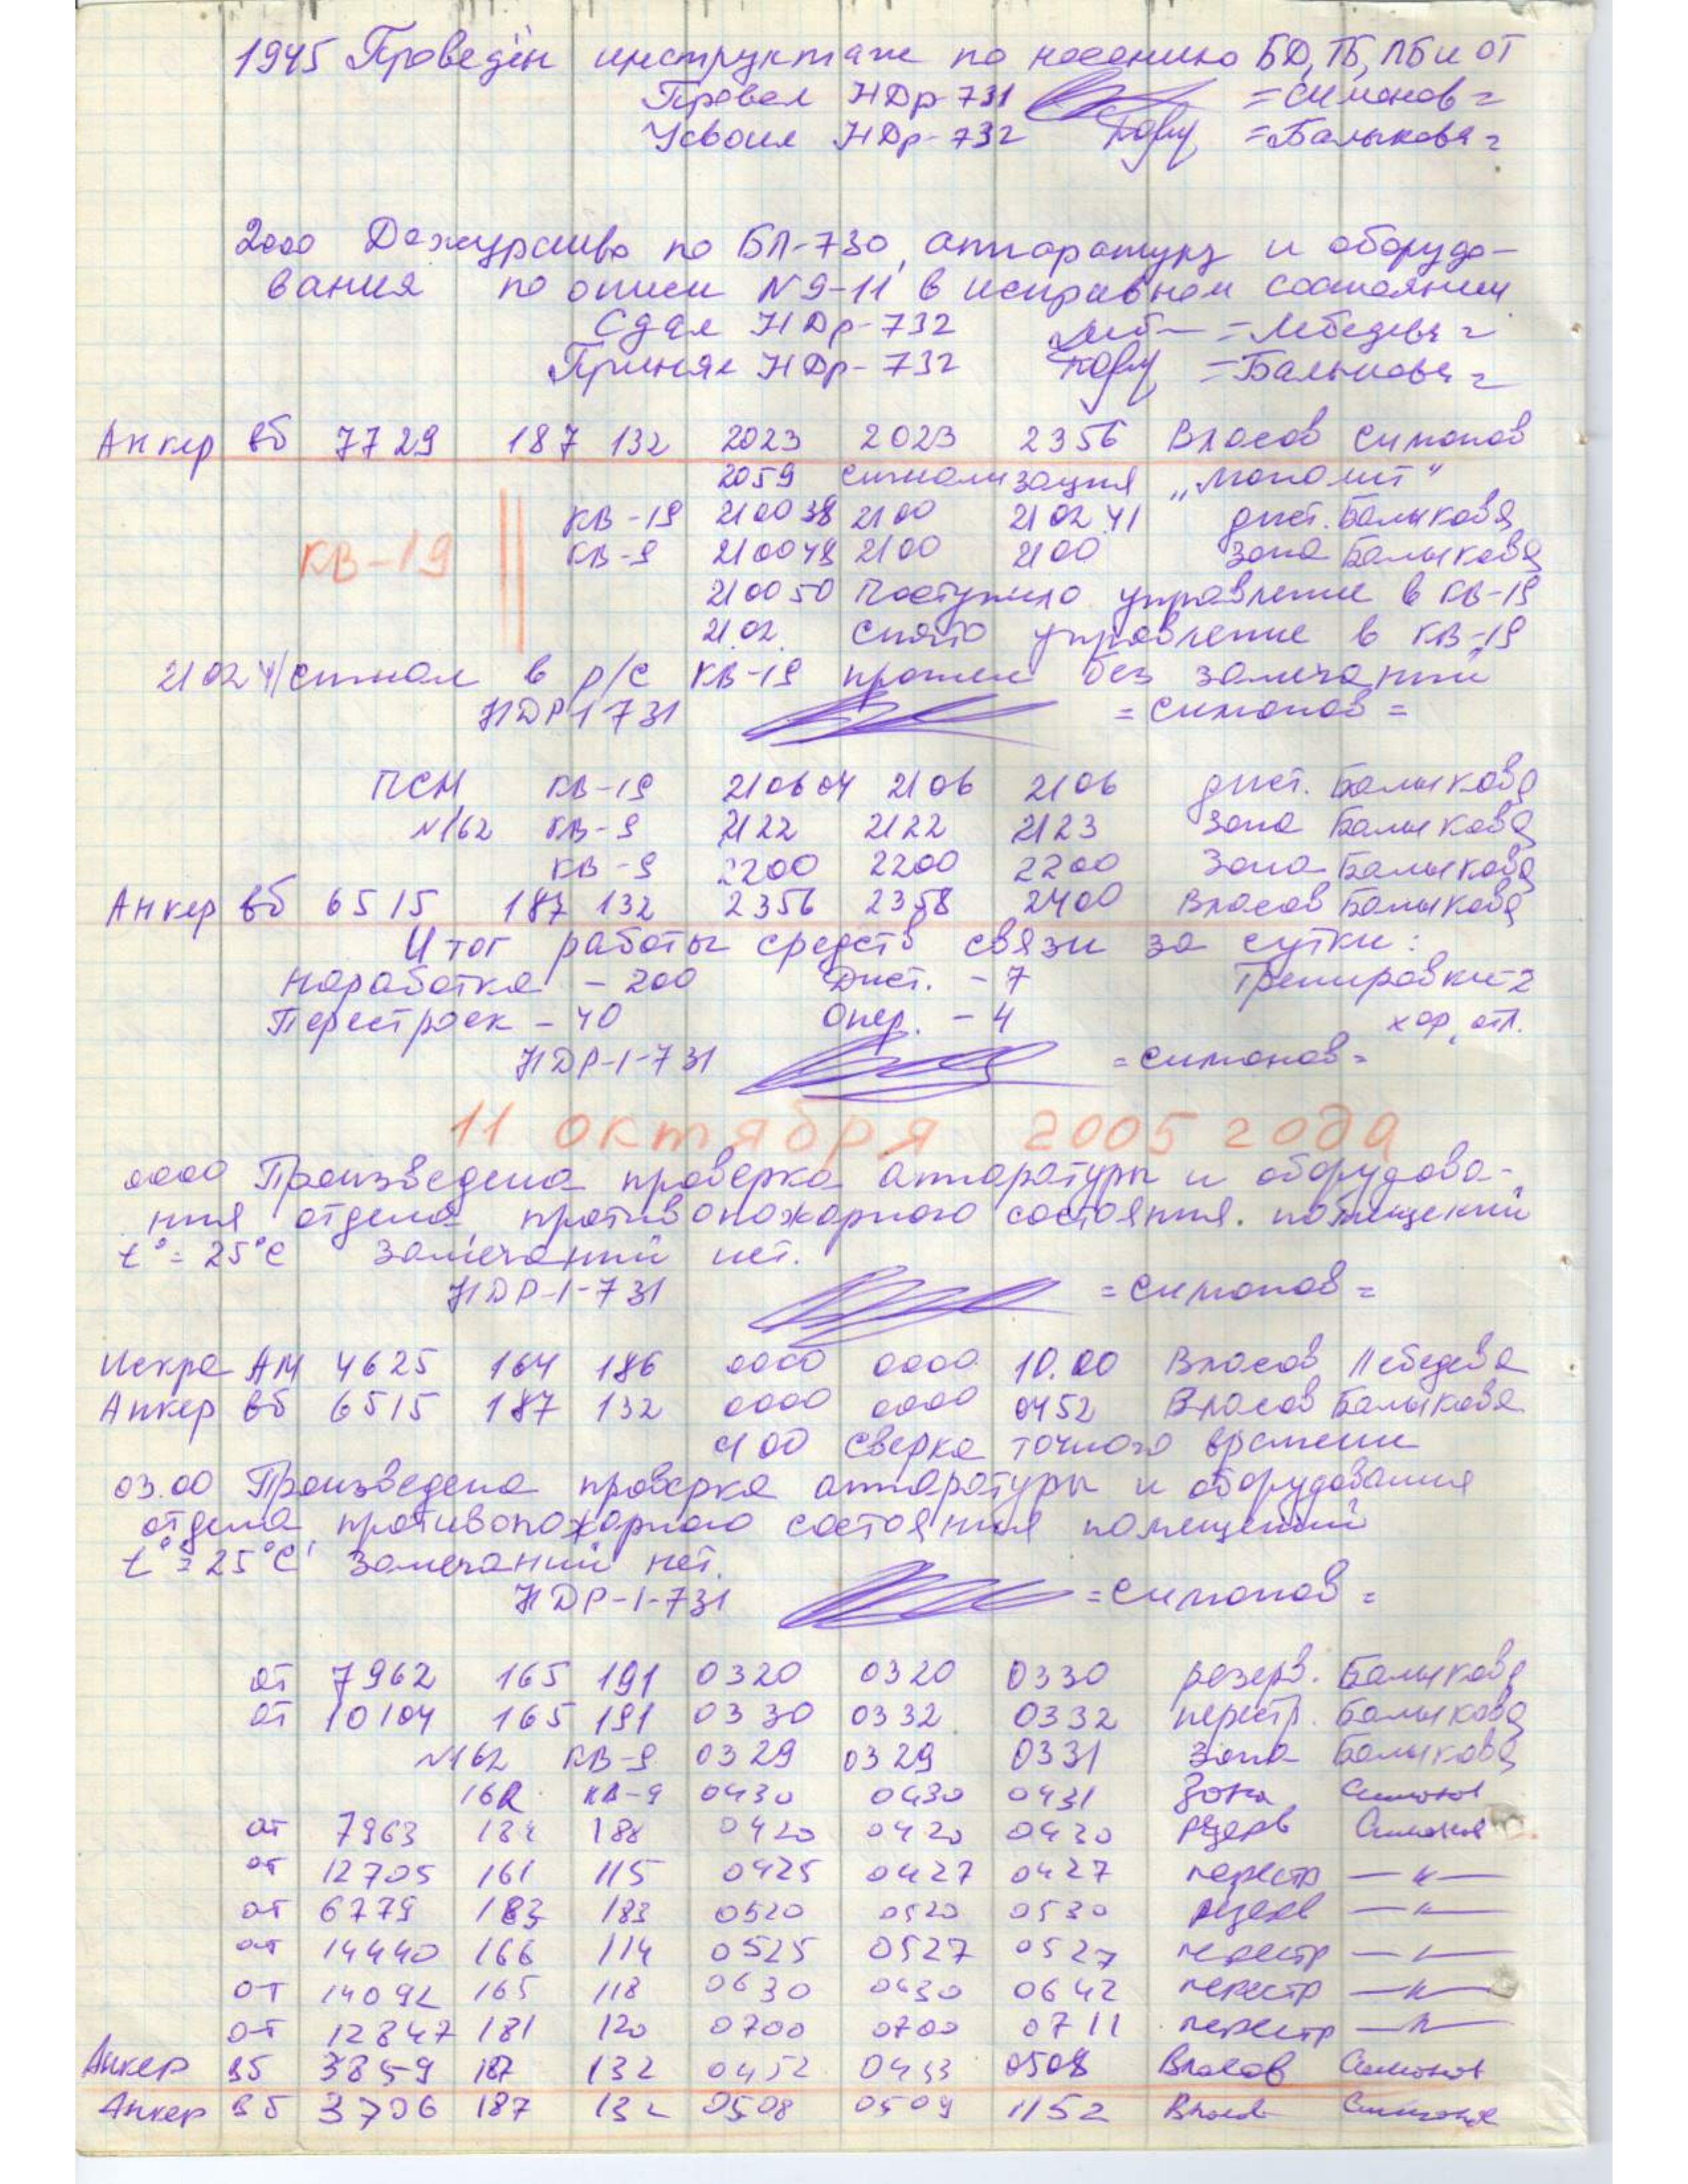 1945 Проведён инструктаж по несению БД, ТБ, ПБ и ОТ
Провел НДр-731 =Симонов=
Усвоил НДр-732 =Балыкова=
2000 Дежурство по БП-730, аппаратуру и оборудо-
вания по описи №9-11 в исправном состоянии
Сдал НДр-732 =Лебедева=
Принял НДр-732 =Балыкова=
Анкер вб 7729 187 132 2023 2023 2356 Власов Симонов
2059 Сигнализация „Монолит"
КВ-19 210038 2100 210241 дист. Балыкова
КВ-19
КВ-9 210048 2100 2100 Зона Балыкова
210050 Поступило управление в КВ-19
21.02. Снято управление в КВ-19
210241 Сигнал в р/с КВ-19 прошел без замечаний
НДР-1 731 =Симонов=
ПСМ КВ-19 210604 2106 2106 дист. Балыкова
N162 КВ-9 2122 2122 2123 Зона Балыкова
КВ-9 2200 2200 2200 Зона Балыкова
Анкер вб 6515 187 132 2356 2358 2400 Власов Балыкова
Итог работы средств связи за сутки:
Наработка - 200 Дист. - 7 Тренировки-2
Перестроек - 40 Опер. - 4 хор, отл.
НДР-1-731 =Симонов=
11 октября 2005 года
0000 Произведена проверка аппаратуры и оборудова-
ния отдела, противопожарного состояния. помещений
t°= 25°C Замечаний нет.
НДР-1-731 =Симонов=
Искра АМ 4625 164 186 0000 0000 10.00 Власов Лебедева
Анкер вб 6515 187 132 0000 0000 0452 Власов Балыкова
0100 сверка точного времени
03.00 Произведена проверка аппаратуры и оборудования
отдела, противопожарного состояния помещений
t°= 25°C Замечаний нет.
НДР-1-731 =Симонов=
от 7962 165 191 0320 0320 0330 резерв. Балыкова
от 10104 165 191 0330 0332 0332 перестр. Балыкова
N162 КВ-9 0329 0329 0331 Зона Балыкова
162 КВ-9 0430 0430 0431 Зона Симонов
от 7963 184 188 0420 0420 0430 резерв Симонов
от 12705 161 115 0425 0427 0427 перестр —"—
от 6779 183 183 0520 0520 0530 резерв —"—
от 14440 166 114 0525 0527 0527 перестр —"—
от 14092 165 118 0630 0630 0642 перестр —"—
от 12847 181 120 0700 0700 0711 перестр —"—
Анкер вб 3859 187 132 0452 0453 0508 Власов Симонов
Анкер вб 3706 187 132 0508 0509 1152 Власов Симонов